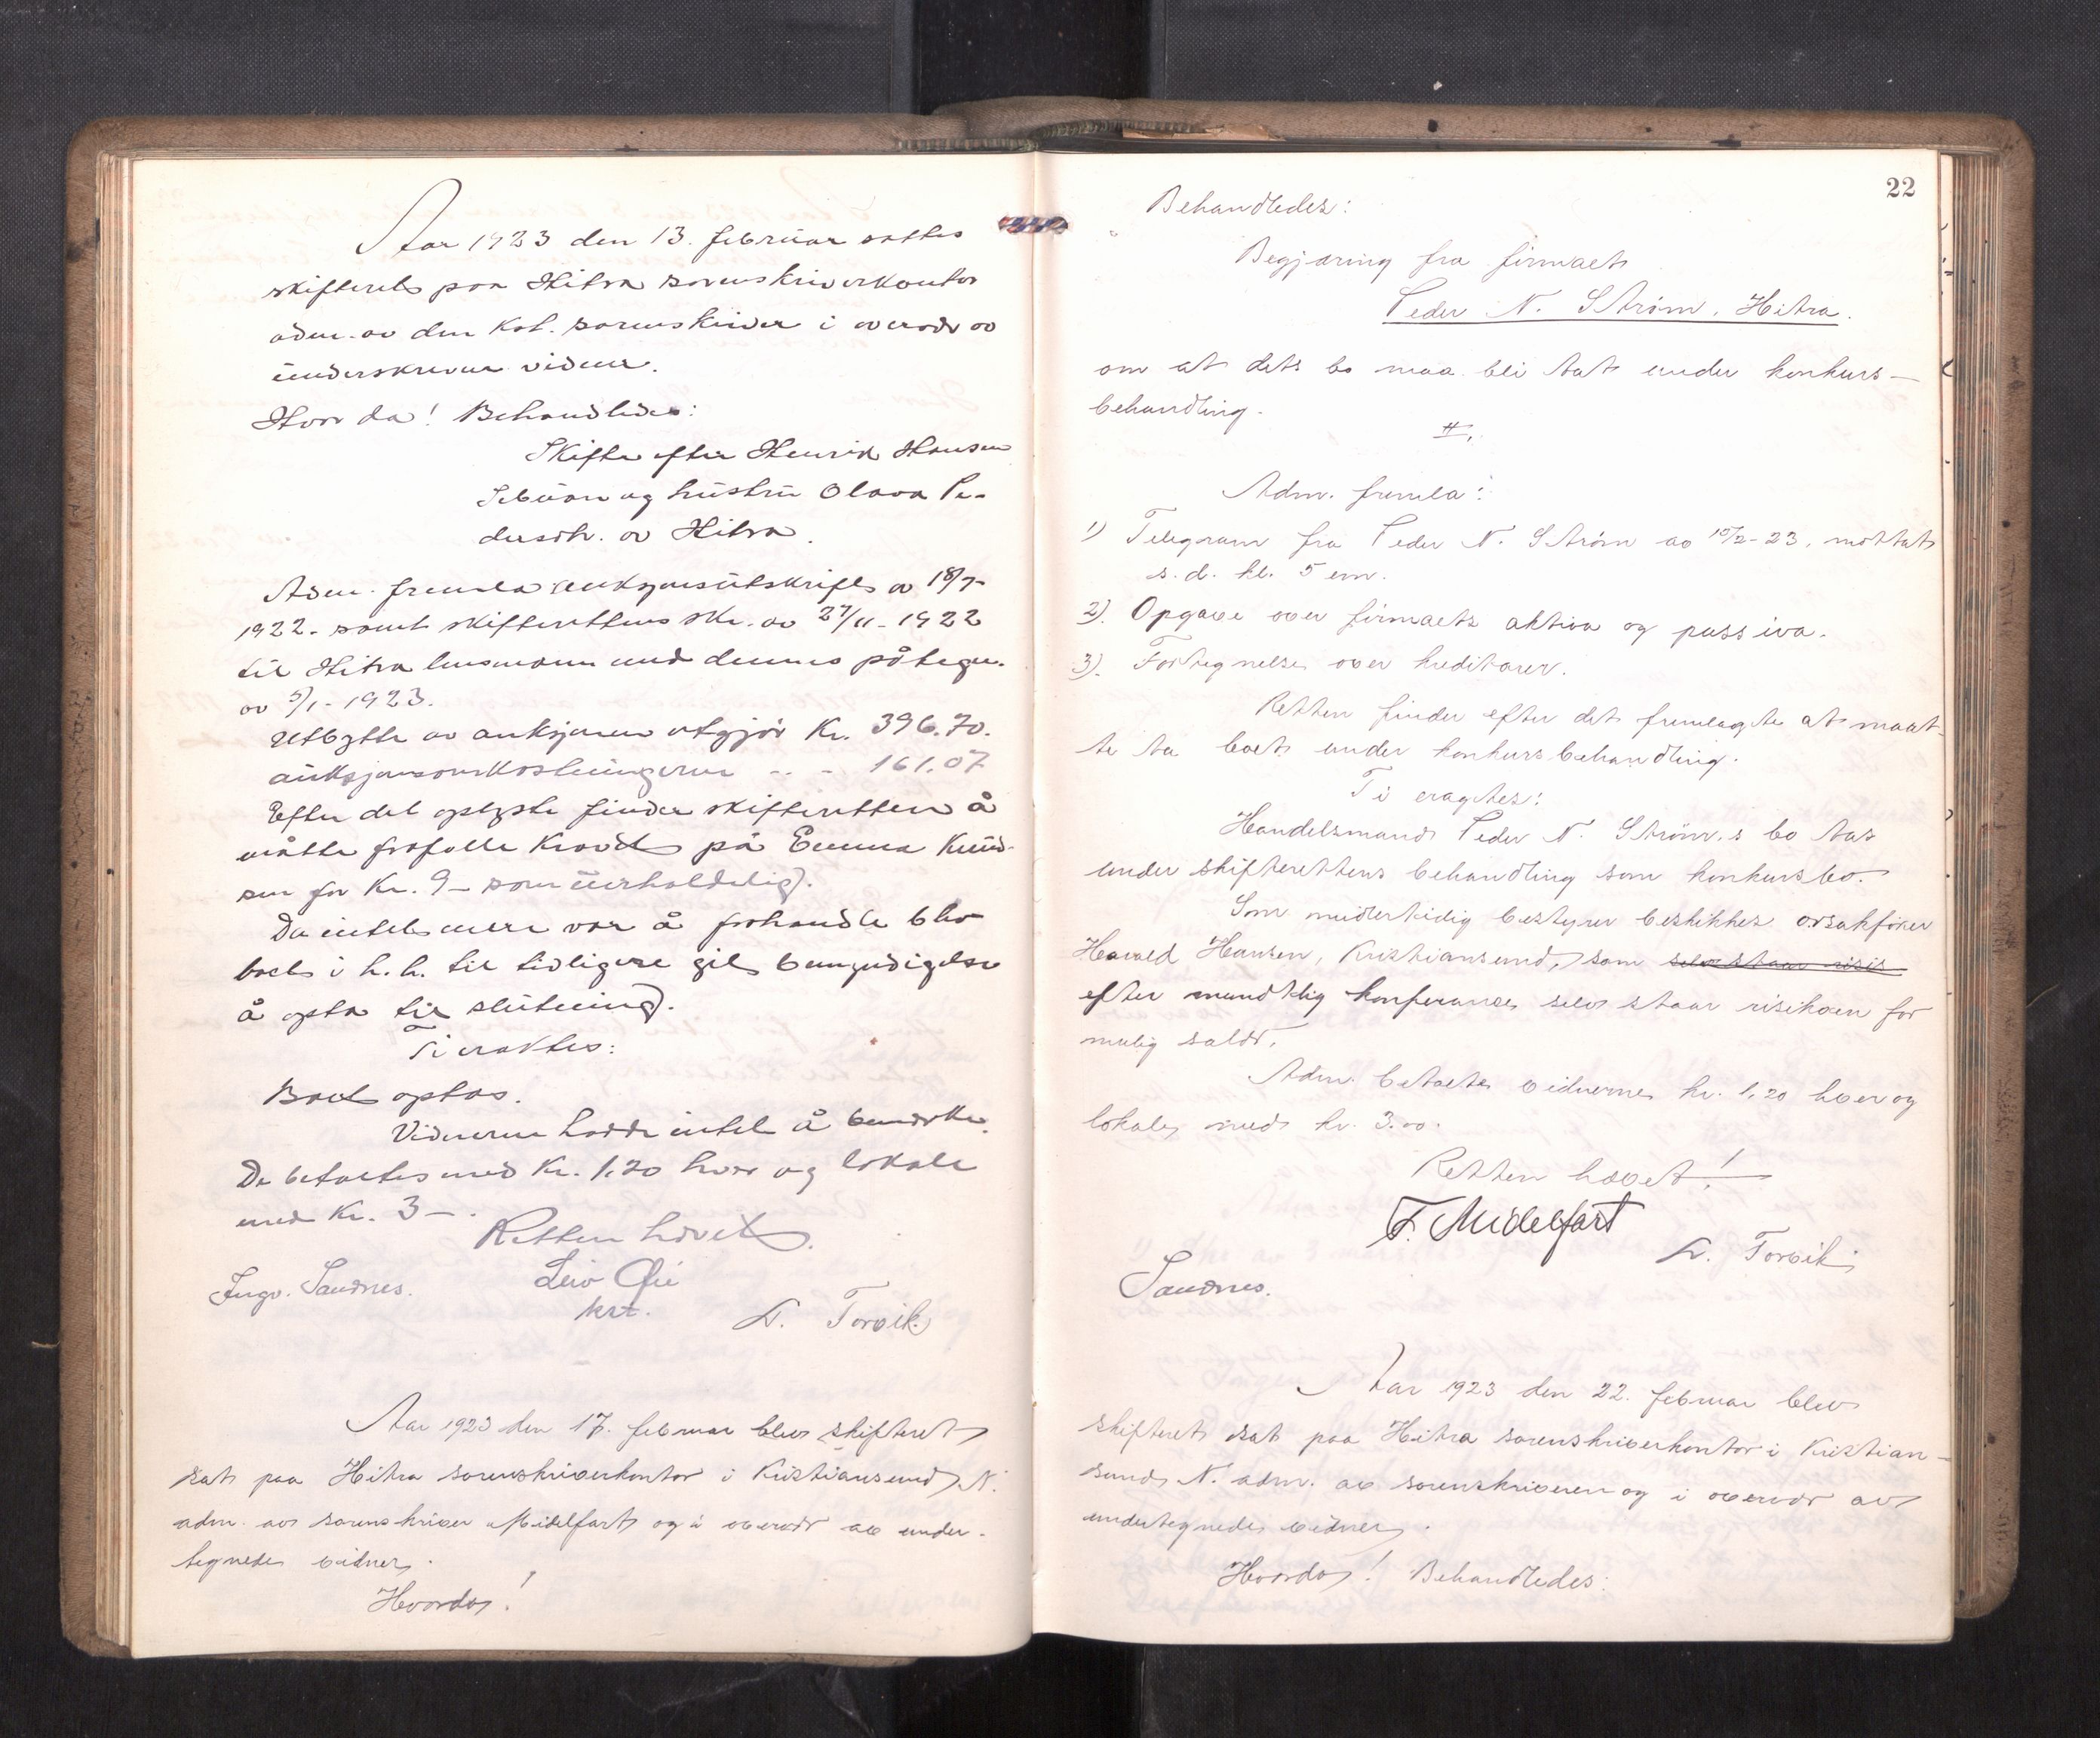 Aar 1923 den 13. februar sattes
skifterets paa Hitra sorenskriverkontor
adm. av den kst. sorenskriver i overvær av
underskrevne vidner.
Hvor da! Behandledes:
Skifte efter Henrik Hansen
og hustru Olava Pe-
dersdtr. av Hitra.
Adm. fremla auksjonsutskrift av 18/7-
1922. samt skifterettens skr. av 27/11-1922
til Hitra lensmann med dennes påtegn.
av 5/1-1923.
Utbytte av auksjonen utgjør Kr. 396.70.
auksjonsomkostningerne " - 161.07
Efter det oplyste finder skifteretten å
måtte frafalle kravet på Emma Knud-
sen for Kr. 9- som uerholdelig.
Da intet mere var å forhandle blev
boet i h.h. til tidligere git bemyndigelse
å opta til slutning.
Ti eraktes:
Boet optas.
Vidnerne hadde intet å bemerke.
De betaltes med Kr. 1.20 hver og lokale
med Kr. 3-.
Retten hævet.
Ingv. Sandnes.
Leiv
kst.
L. Torvik
Aar 1923 den 17. februar blev skifteret
sat paa Hitra sorenskriverkontor i Kristiansund N.
adm. av sorenskriver Midelfart og i overvær av under-
tegnede vidner.
Hvorda!
22
Behandledes:
Begjæring fra firmaet
Peder N. Strøm, Hitra.
om at dets bo maa bli tat under konkurs-
behandling.
Adm. fremla:
1) Telegram fra Peder N. Strøm av 10/2-23, mottat
s.d. kl. 5 em.
2). Opgave over firmaets aktiva og passiva.
3). Fortegnelse over kreditorer.
Retten finder efter det fremlagte at maat-
te ta boet under konkursbehandling.
Ti eragtes:
Handelsmand Peder N. Strøm,s bo tas
under skifterettens behandling som konkursbo.
Som midlertidig bestyrer beskikkes o.rsakfører
Harald Hansen, Kristiansund, som selv staar risik
efter mundtlig konferanse selv staar risikoen for
mulig saldo.
Adm. betalte vidnerne kr. 1,20 hver og
lokale med kr. 3.00.
Retten hævet!
F. Midelfart
L. Torvik
Sandnes.
Aar 1923 den 22. februar blev
skifteret sat paa Hitra sorenskriverkontor i Kristian-
sund N. adm. av sorenskriveren og i overvær av
undertegnede vidner.
Hvorda! Behandledes: